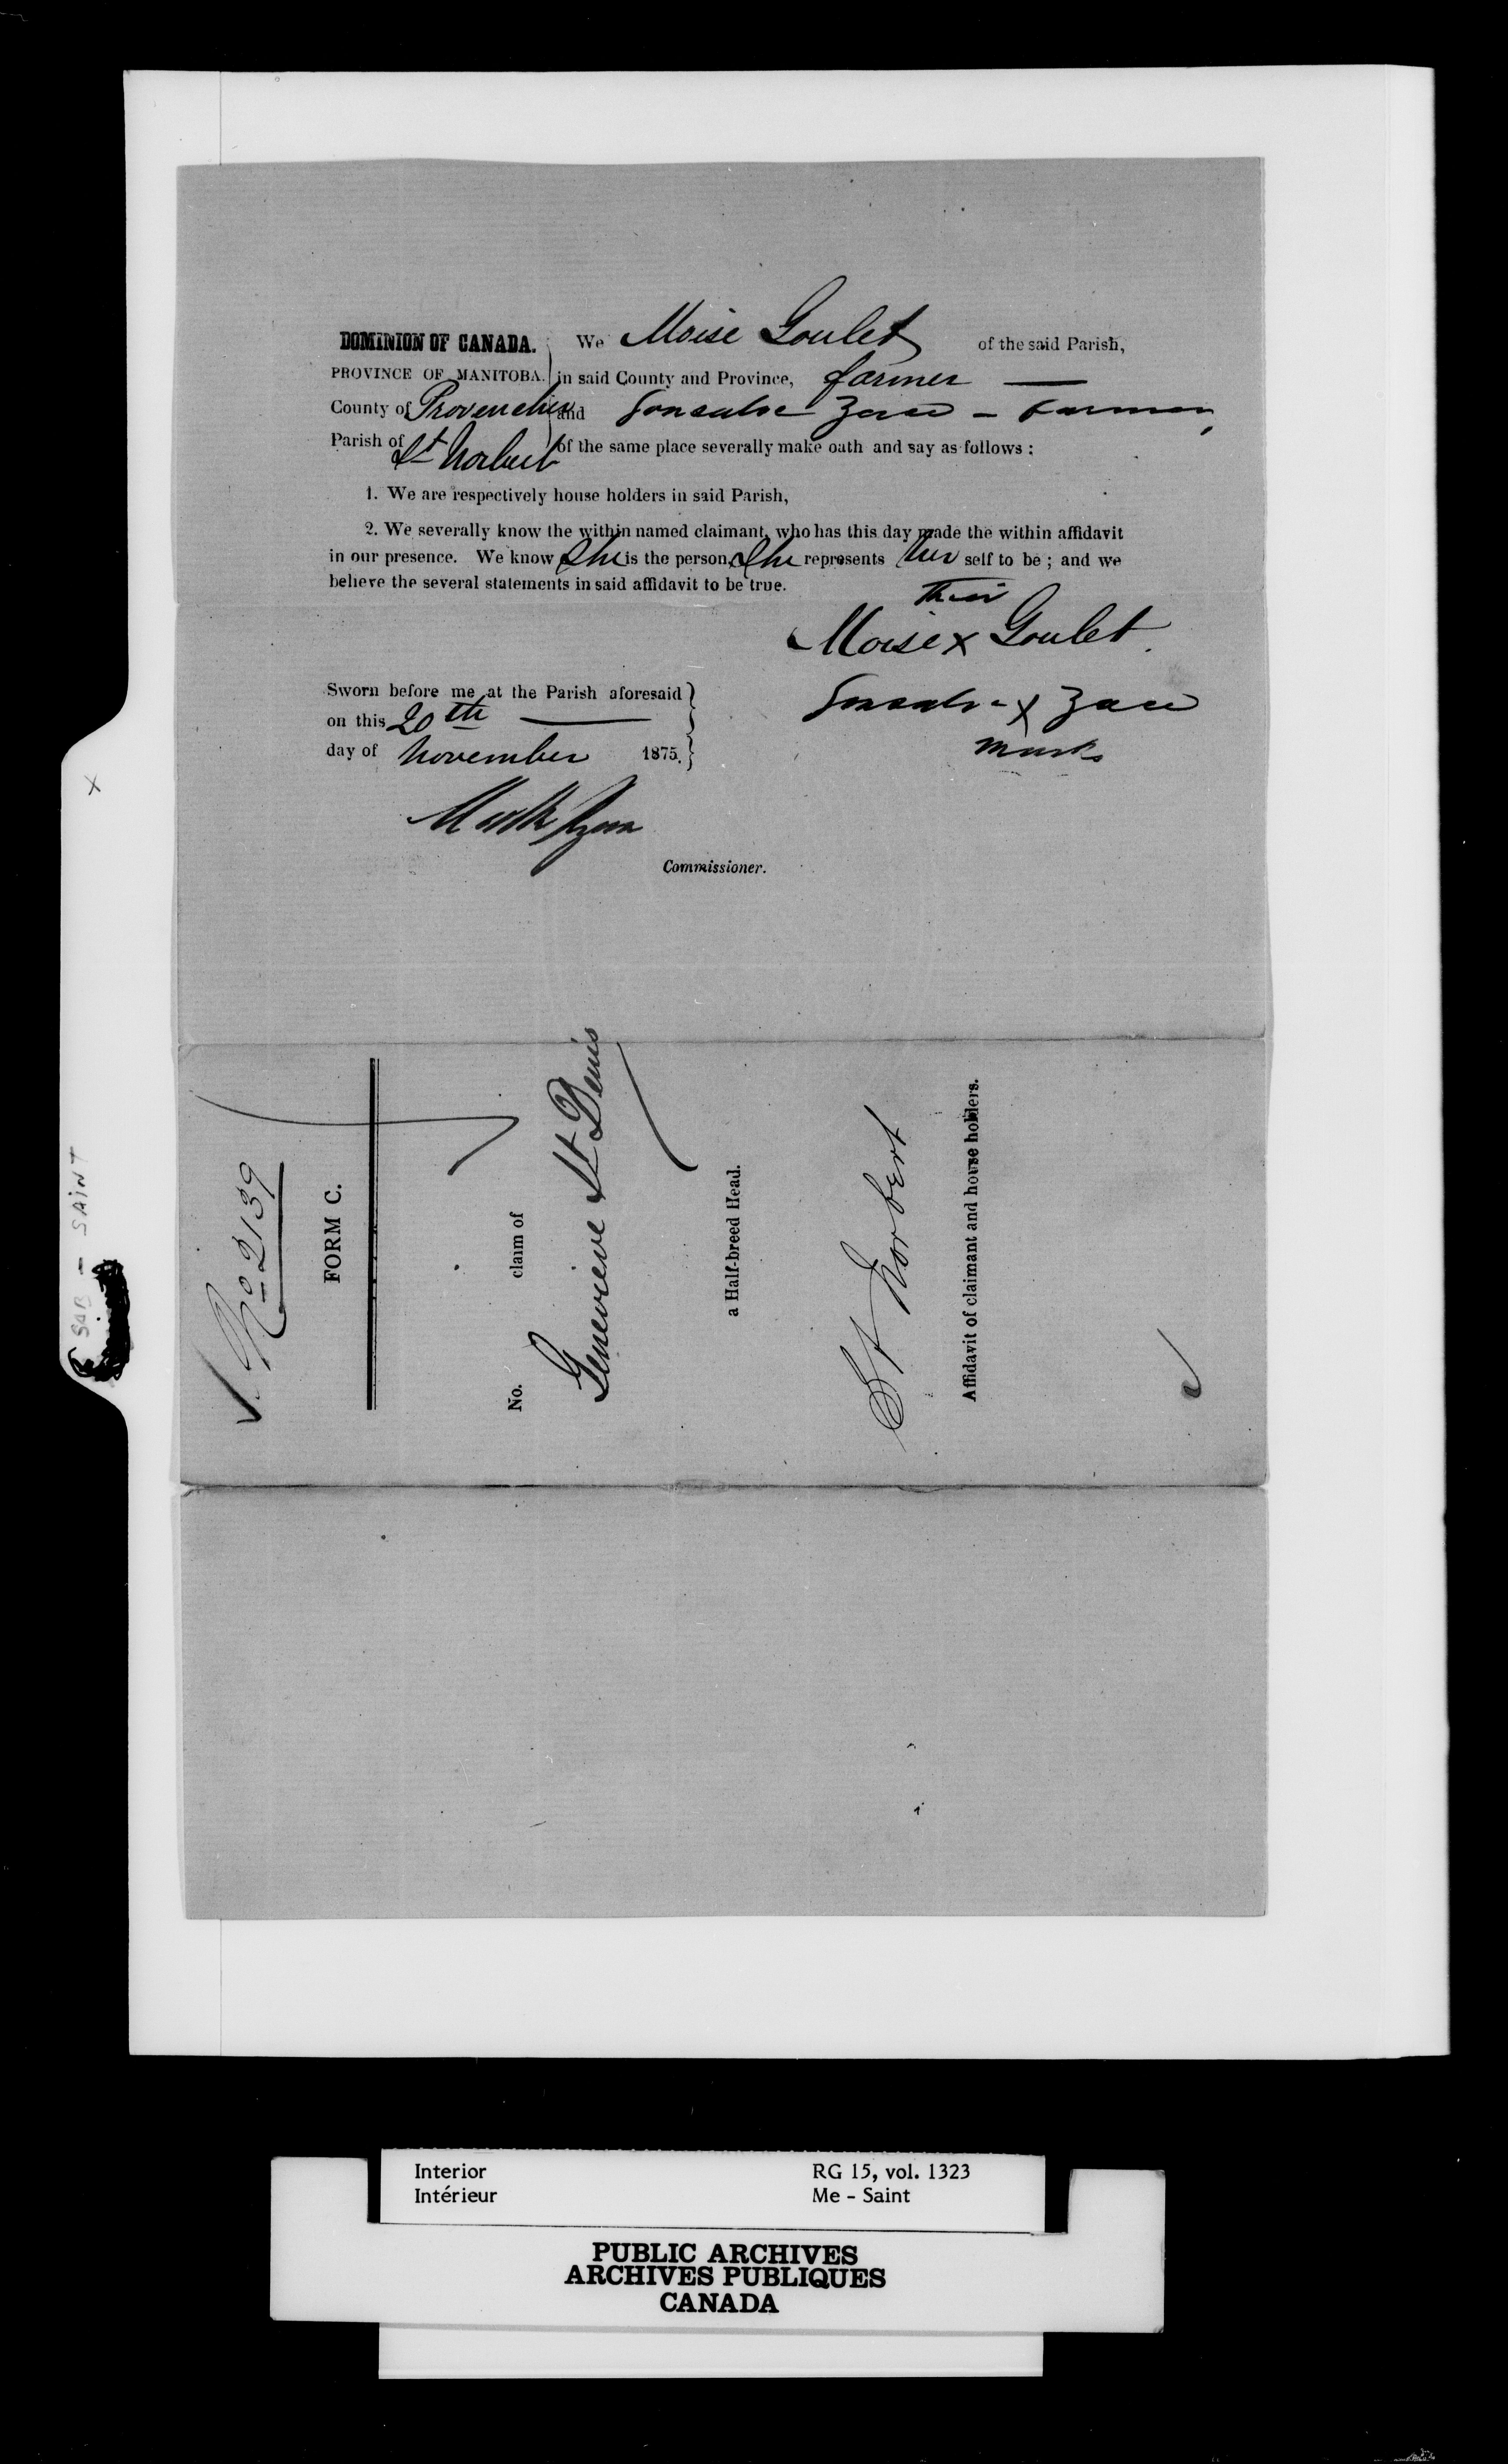 DOMINION OF CANADA. We Moise Goulet of the said Parish,
PROVINCE OF MANITOBA. in said County and Province, farmer
County of Provencher and Gonsalve Zace - Farmer,
Parish of St Norbert of the same place severally make oath and say as follows :
1. We are respectively house holders in said Parish,
2. We severally know the within named claimant, who has this day made the within affidavit
in our presence. We know She is the person She represents her self to be ; and we
believe the several statements in said affidavit to be true.
their
Moise x Goulet.
Sworn before me at the Parish aforesaid
Gonsalve x Zace
on this 20th
marks
day of November 1875.
Commissioner.
x
SAB - SAINT
No 2139
FORM C.
No. claim of
Genevieve St Denis
a Half-breed Head.
St Norbert
Affidavit of claimant and house holders.
Interior RG 15, vol. 1323
Intérieur Me - Saint
PUBLIC ARCHIVES
ARCHIVES PUBLIQUES
CANADA